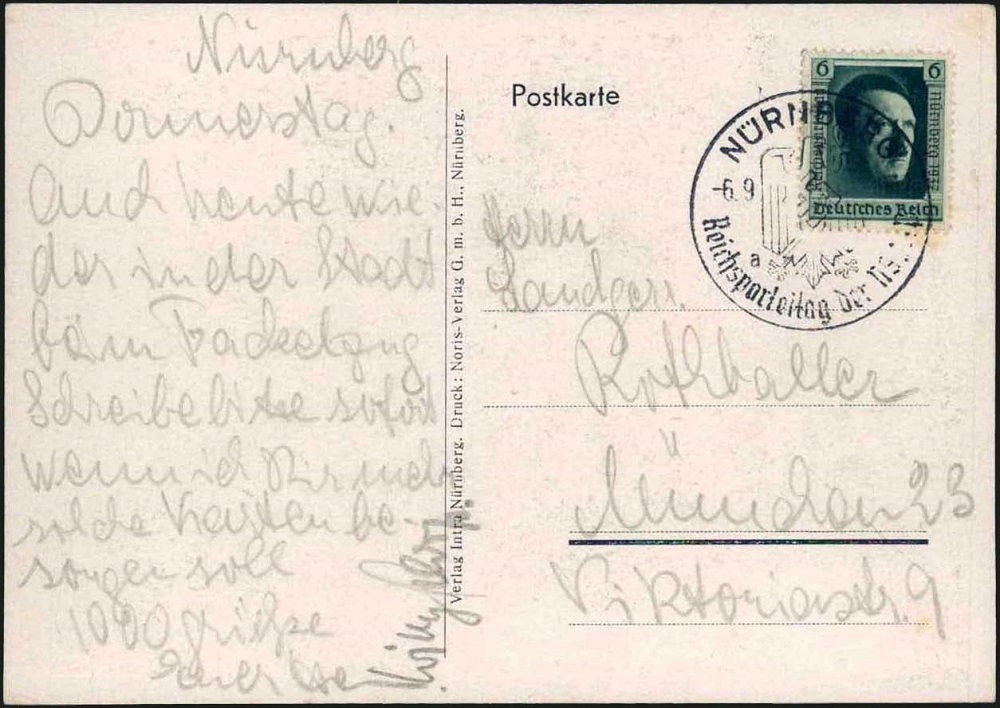 Nürnberg
Donnerstag.
Auch heute wie-
der in der Stadt
beim Fackelzug
Schreibe bitte sofort
wenn ich Dir mehr
solche Karten be-
sorgen soll
1000 Grüße
Verlag Intra Nürnberg. Druck: Noris-Verlag G. m. b. H., Nürnberg.
Postkarte
6 6
Nürnberg 1937
Deutsches Reich
NÜRNBERG
-6.9
a
Reichsparteitag der NS
Herrn
Landger.
Rothballer
München 23
Viktoriastr. 9